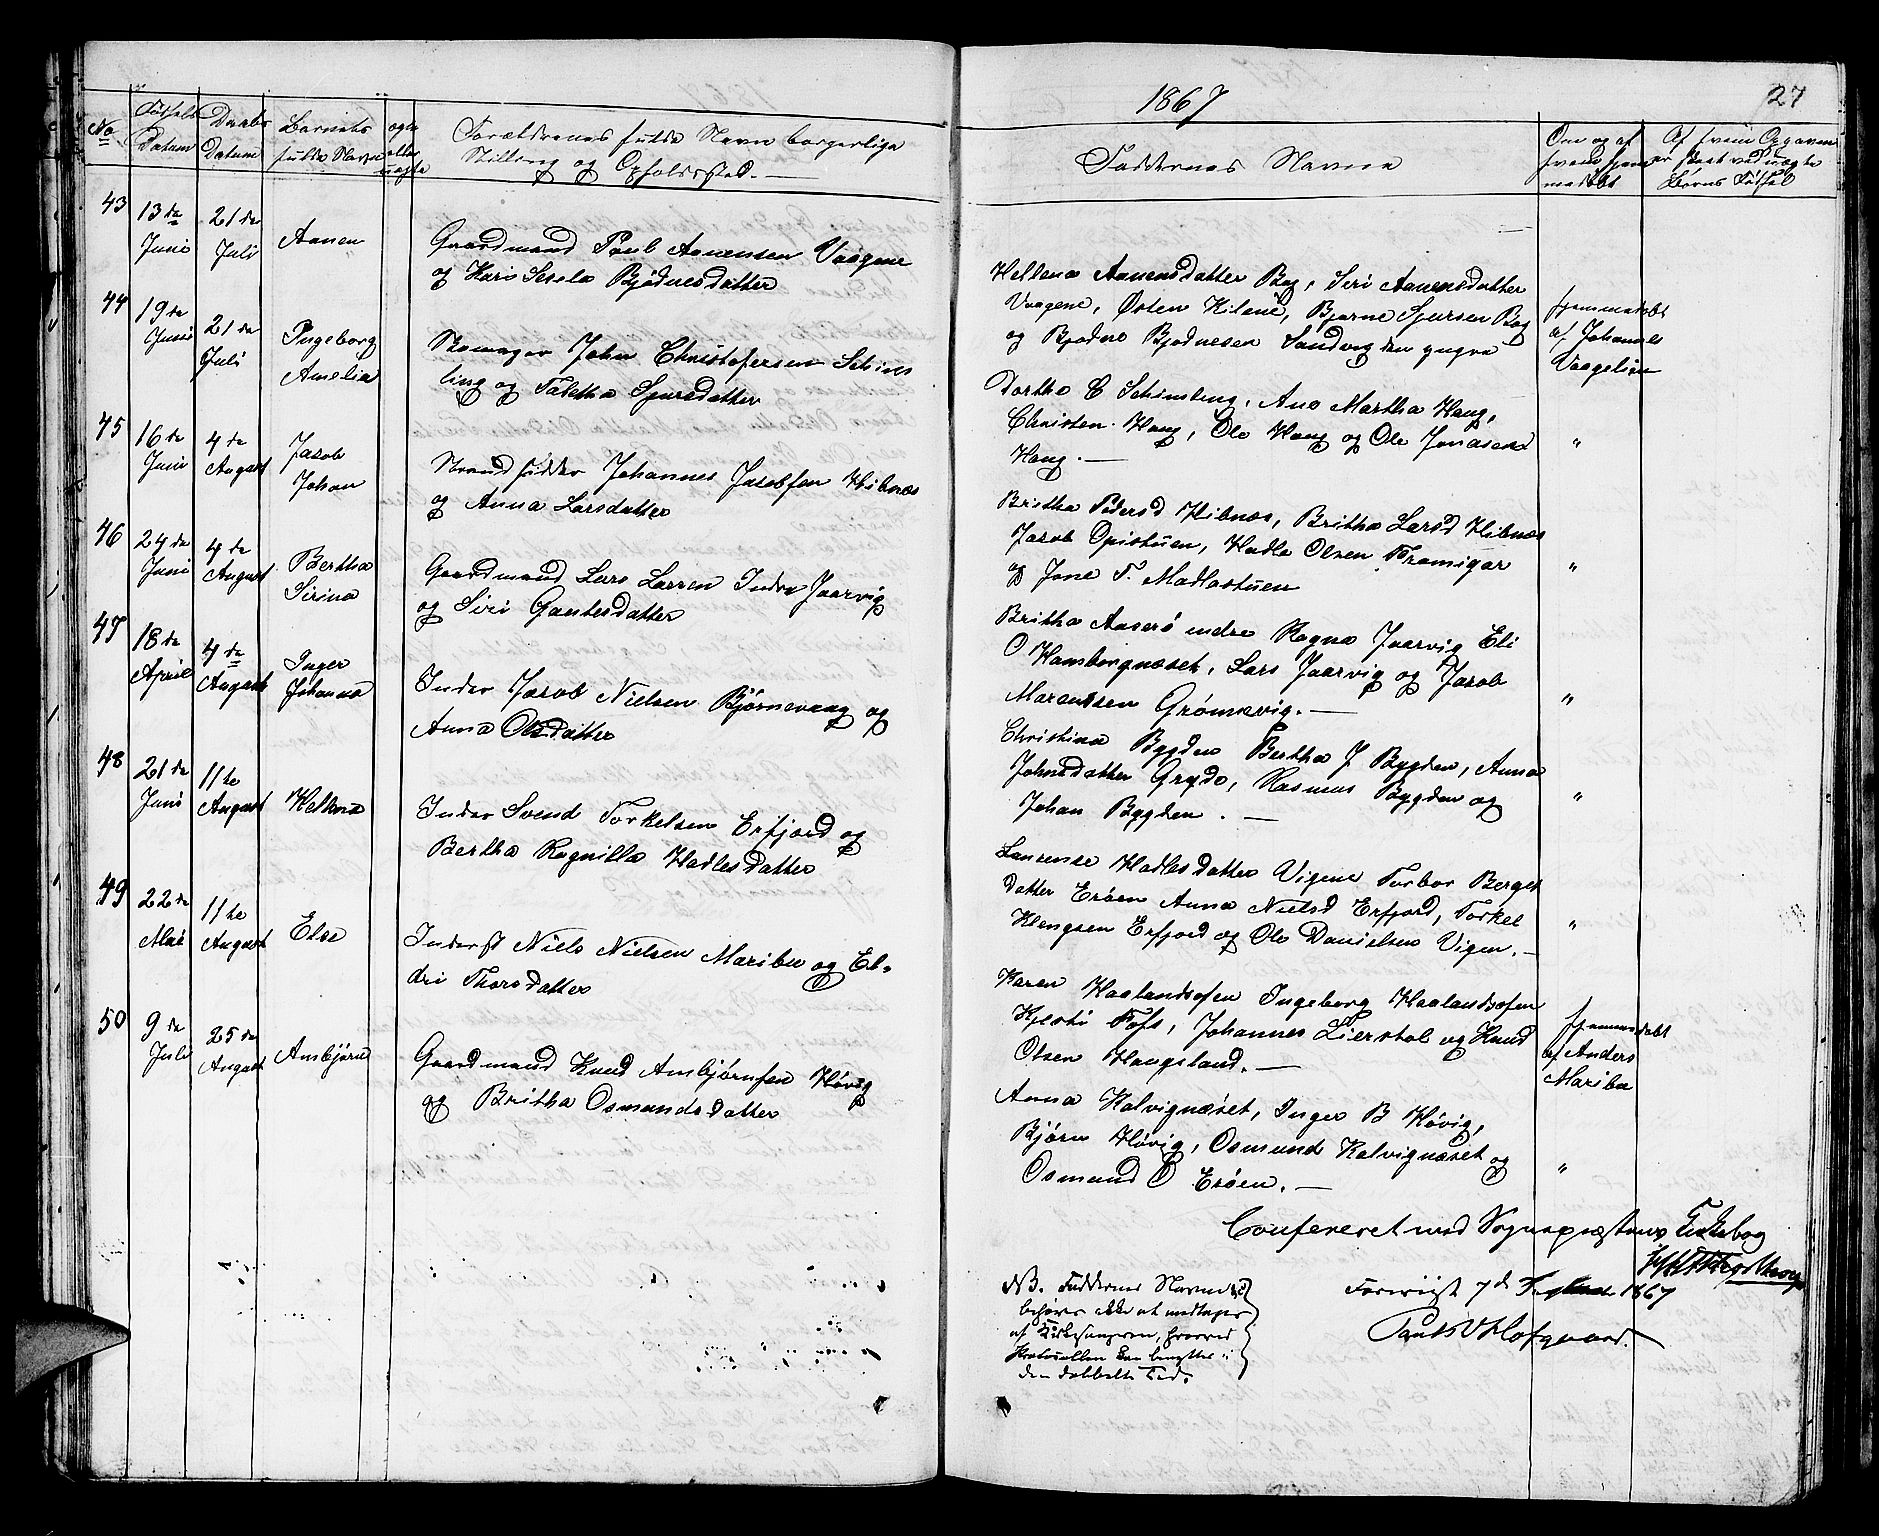 1867
27
No
Fødsels
Datum
Daabs
Datum
Barnets
fulde Navn
ægte
eller
uægte
Forældrenes fulde Navn borgerlige
Stilling og Opholdssted. —
Faddernes Navne
Om og af
hvem hjem-
medøbt
Af hvem Opgaven
er skeet ved uægte
Børns Fødsel
43
13de
Juni
21de
Juli
Aanen
Gaardmand Poul Aanensen Vaagene
og Kari Sesela Bjødnesdatter
Hellena Aanensdatter Bog, Siri Aanensdatter
Vaagene, Østen Kilene, Bjarne Sjursen Bog
og Bjødne Bjødnesen Sandvig den yngre
hjemmedøbt
af Johannes
Vaagelien
44
19de
Juni
21de
Juli
Ingeborg
Amelia
Skomager John Christofersen Schim
ling og Tabetha Sjursdatter
Dorthe C Schimling, Ane Martha Haug,
Christen Haug, Ole Haug og Ole Jonasen
Haug. —
"
45
16de
Juni
4de
August
Jacob
Johan
Strandsidder Johannes Jacobsen Hibnes
og Anna Larsdatter
Britha Pedersd Hibnæs, Britha Larsd Hibnæs
Jacob Opistuen, Hadle Olsen Tramigar
og Jone T. Madlastuen
"
46
24de
Juni
4de
August
Bertha
Sirina
Gaardmand Lars Larsen Indre Jaarvig
og Siri Gautesdatter
Britha Aaserø indre Ragna Jaarvig Eli
O Hamborgnæset, Lars Jaarvig og Jacob
Marcussen Grønnevig. —
"
47
18de
April
4de
August
Inger
Johanna
Inder Jacob Nielsen Bjørnevaag og
Anna Olsdatter
Christina Bygden Bertha J Bygden, Anna
Johnsdatter Gryde, Rasmus Bygden og
Johan Bygden. —
"
48
21de
Juni
11te
August
Hellena
Inder Svend Torkelsen Erfjord og
Bertha Ragnilla Hadlesdatter
Laurense Hadlesdatter Vigene Torbor Berget
datter Erøen Anna Nielsd Erfjord, Torkel
Helgesen Erfjord og Ole Danielsen Vigen. —
"
49
22de
Mai
11te
August
Else
Inderst Niels Nielsen Maribu og El-
dri Thorsdatter
Karen Haalandsosen Ingeborg Haalandsosen
Kjersti Fos, Johannes Lierstøl og Knud
Olsen Haugsland. —
hjemmedøbt
af Anders
Maribu
50
9de
Juli
25de
August
Ambjørn
Gaardmand Knud Ambjørnsen Høvig
og Britha Osmundsdatter
Anna Kalvignæset, Inger B Høvig,
Bjørn Høvig, Osmund Kalvignæset og
Osmund O Erøen. —
"
Confereret med Sognepræstens Kirkebog
NB. Faddernes Navne
behøves ikke at medtages
af Kirkesangeren, hvorved
Protocollen kan benyttes i
den dobbelte Tid.
7de 1867
Hofgaard.